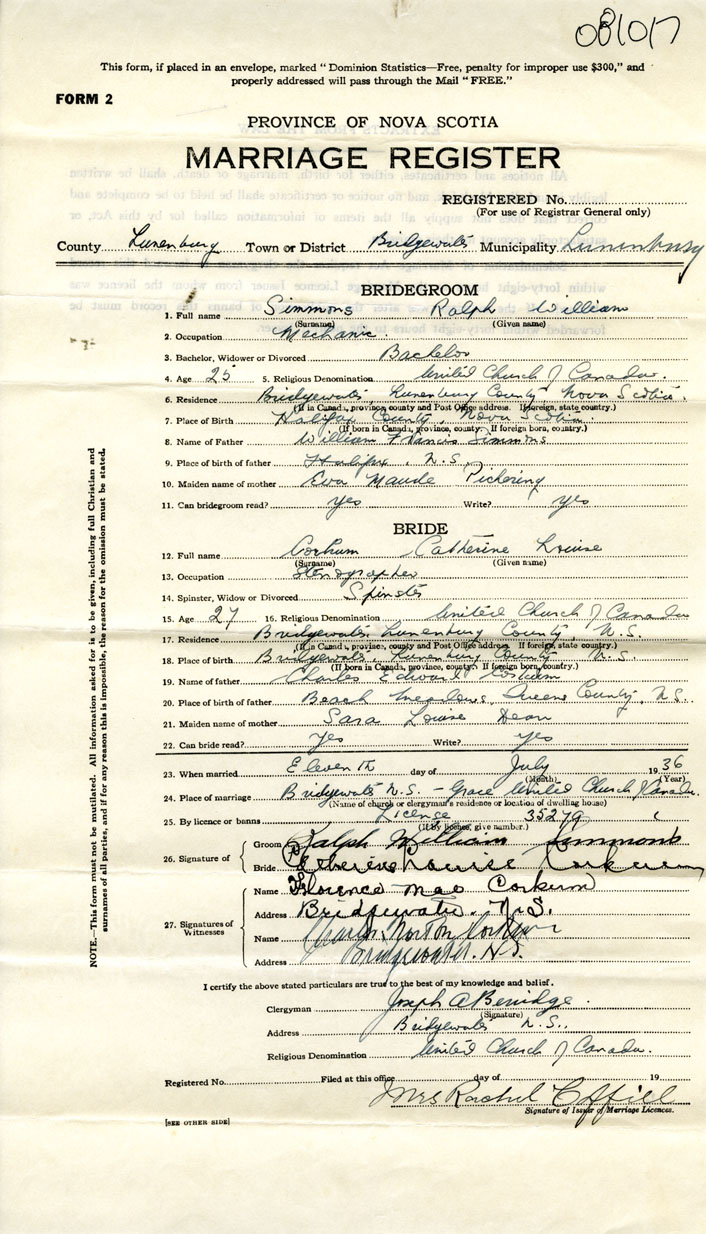 081017
This form, if placed in an envelope, marked " Dominion Statistics—Free, penalty for improper use $300," and
properly addressed will pass through the Mail " FREE."
FORM 2
PROVINCE OF NOVA SCOTIA
MARRIAGE REGISTER
REGISTERED No.
(For use of Registrar General only)
County Lunenburg Town or District Bridgewater Municipality Lunenburg
BRIDEGROOM
1. Full name Simmons Ralph William
(Surname) (Given name)
2. Occupation Mechanic.
3. Bachelor, Widower or Divorced Bachelor
4. Age 25 5. Religious Denomination United Church of Canada.
6. Residence Bridgewater, Lunenburg County, Nova Scotia.
(If in Canada, province, county and Post Office address. If foreign, state country.)
7. Place of Birth Halifax County, Nova Scotia.
(If born in Canada, province, county. If foreign born, country.)
8. Name of Father William Francis Simmons
9. Place of birth of father Halifax, N.S.
10. Maiden name of mother Eva Maude Pickering
11. Can bridegroom read? yes Write? yes
BRIDE
12. Full name Corkum Catherine Louise
(Surname) (Given name)
13. Occupation Stenographer
14. Spinster, Widow or Divorced Spinster
15. Age 27 16. Religious Denomination United Church of Canada
17. Residence Bridgewater, Lunenburg County, N.S.
(If in Canada, province, county and Post Office address. If foreign, state country.)
18. Place of birth Bridgewater, Lunenburg County, N.S.
(If born in Canada, province, county. If foreign born, country.)
19. Name of father Charles Edward Corkum
20. Place of birth of father Beach Meadows, Queens County, N.S.
21. Maiden name of mother Sara Louise Dean
22. Can bride read? yes Write? yes
23. When married Eleventh day of July 1936
(Month) (Year)
24. Place of marriage Bridgewater N.S. - Grace United Church of Canada.
(Name of church or clergyman's residence or location of dwelling house)
25. By licence or banns License 35279
(If by licence, give number.)
26. Signature of Groom Ralph William Simmons
Bride Catherine Louise Corkum
27. Signatures of Witnesses Name Florence Mae Corkum
Address Bridgewater. N.S.
Name Norton Corkum
Address Bridgewater. N.S.
I certify the above stated particulars are true to the best of my knowledge and belief.
Clergyman Joseph A Berridge.
(Signature)
Address Bridgewater N.S.
Religious Denomination United Church of Canada.
Registered No. Filed at this office day of 19
Mrs Rachel
Signature of Issuer of Marriage Licences.
[SEE OTHER SIDE]
NOTE.—This form must not be mutilated. All information asked for is to be given, including full Christian and
surnames of all parties, and if for any reason this is impossible, the reason for the omission must be stated.